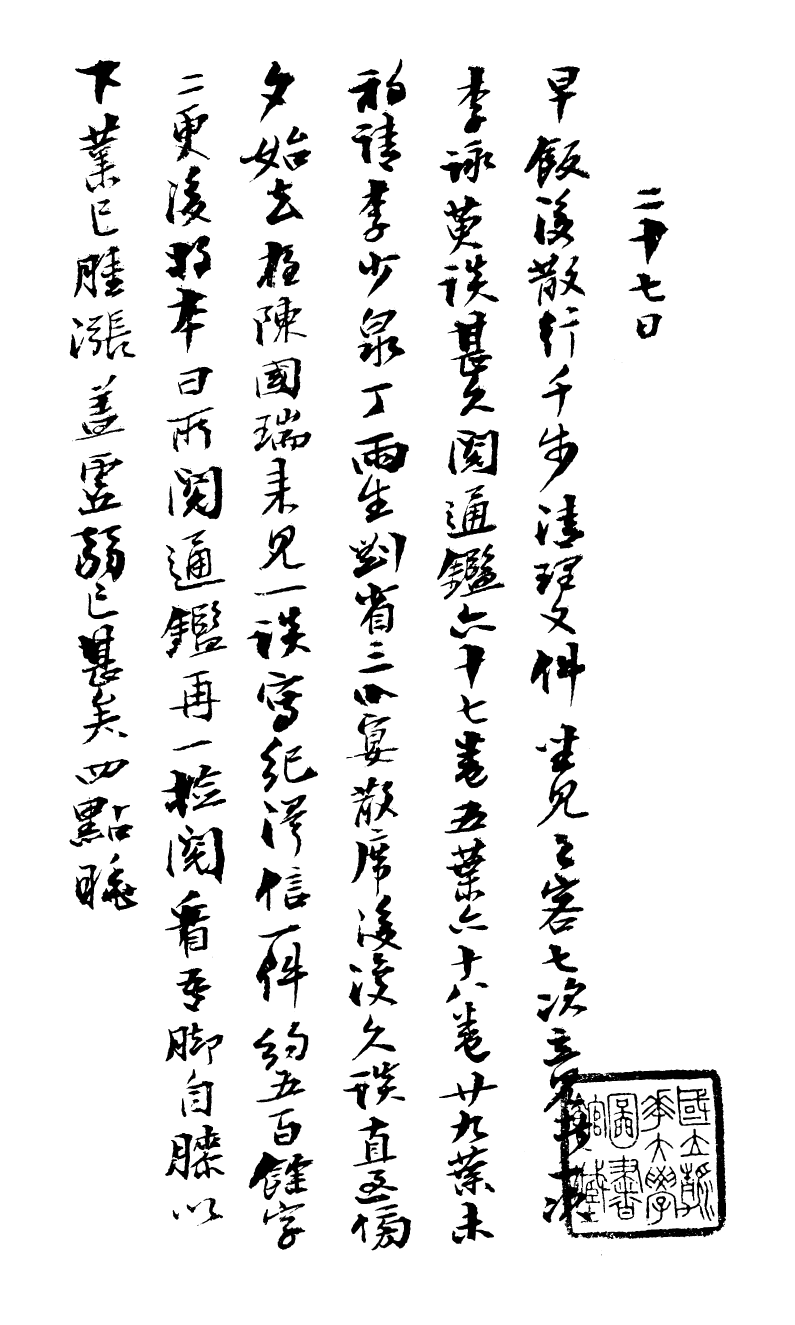 二十七日
早飯後散行千步清理文件坐見之客七次立見者一次
李詠莫談甚久閱通鑑六十七卷五葉六十八卷廿九葉未
初請李少泉丁雨生劉省三小宴散席後渡久談直至傍
夕始去栢陳國瑞来見一談寫紀澤信一件約五百餘字
二更後將本日所閱通鑑再一檢閱看吾脚自膝以
下葉已腫漲盖虛弱已甚矣四點睡
國立清華大學圖書館藏